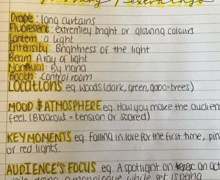 Drape: long curtains
Fluorescent: extremely bright or glowing colours
Lantern: a light
Intensity: Brightness of the light
Beam: A ray of light
Manual: By hand
Booth: control room
Locations eg. woods (dark, green, gobo-trees)
MOOD & ATMOSPHERE eg. How you make the audience
feel. (Blackout - tension or scared)
KEY MOMENTS eg. Falling in love for the first time, pink
or red lights.
AUDIENCE'S FOCUS eg. A spotlight on an act